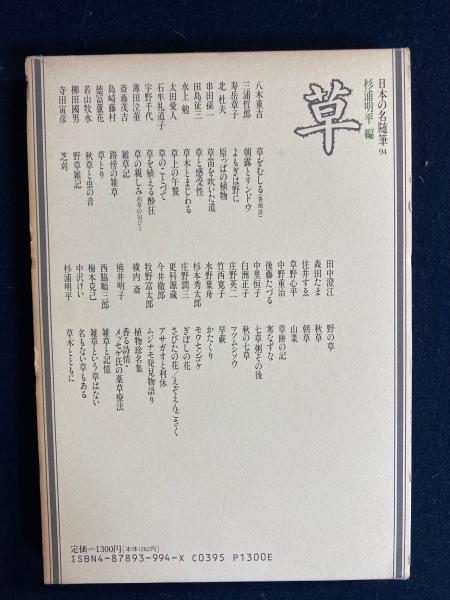 日本の名随筆 94
杉浦明平 編
草
八木重吉 草をむしる(巻頭詩)
三浦哲郎 朝露とリンドウ
寿岳章子 よもぎは野に
北 杜夫 原っぱの植物
串田孫一 草笛を吹いた道
田島征三 草と感受性
水上 勉 草木とまじわる
太田愛人 草上の午餐
石牟礼道子 草のことづて
宇野千代 草を植える酔狂
薄田泣菫 草の親しみ
斎藤茂吉 雑草記
島崎藤村 路傍の雑草
徳富蘆花 草とり
若山牧水 秋草と虫の音
柳田國男 野草雑記
寺田寅彦 芝刈
田中澄江 野の草
森田たま 秋草
住井すゑ 朝草
草野心平 山菜
中野重治 草餅の記
後藤たづる 寒なずな
中里恒子 七草粥その後
白洲正子 秋の七草
庄野英二 マツムシソウ
竹西寛子 早蕨
水野葉舟 かたくり
杉本秀太郎 モウセンゴケ
庄野潤三 ぎぼしの花
更科源蔵 さびたの花／えぞえんごさく
今井徹郎 アサガオと利休
牧野富太郎 ムジナモ発見物語り
横内 斎 植物珍名集
熊井明子 香る詩情・
メッセゲ氏の薬草療法
西脇順三郎 雑草と記憶
梅本克己 雑草という草はない
中沢けい 名もない草もある
杉浦明平 草木とともに
定価=1300円(本体1262円)
ISBN4-87893-994-X C0395 P1300E